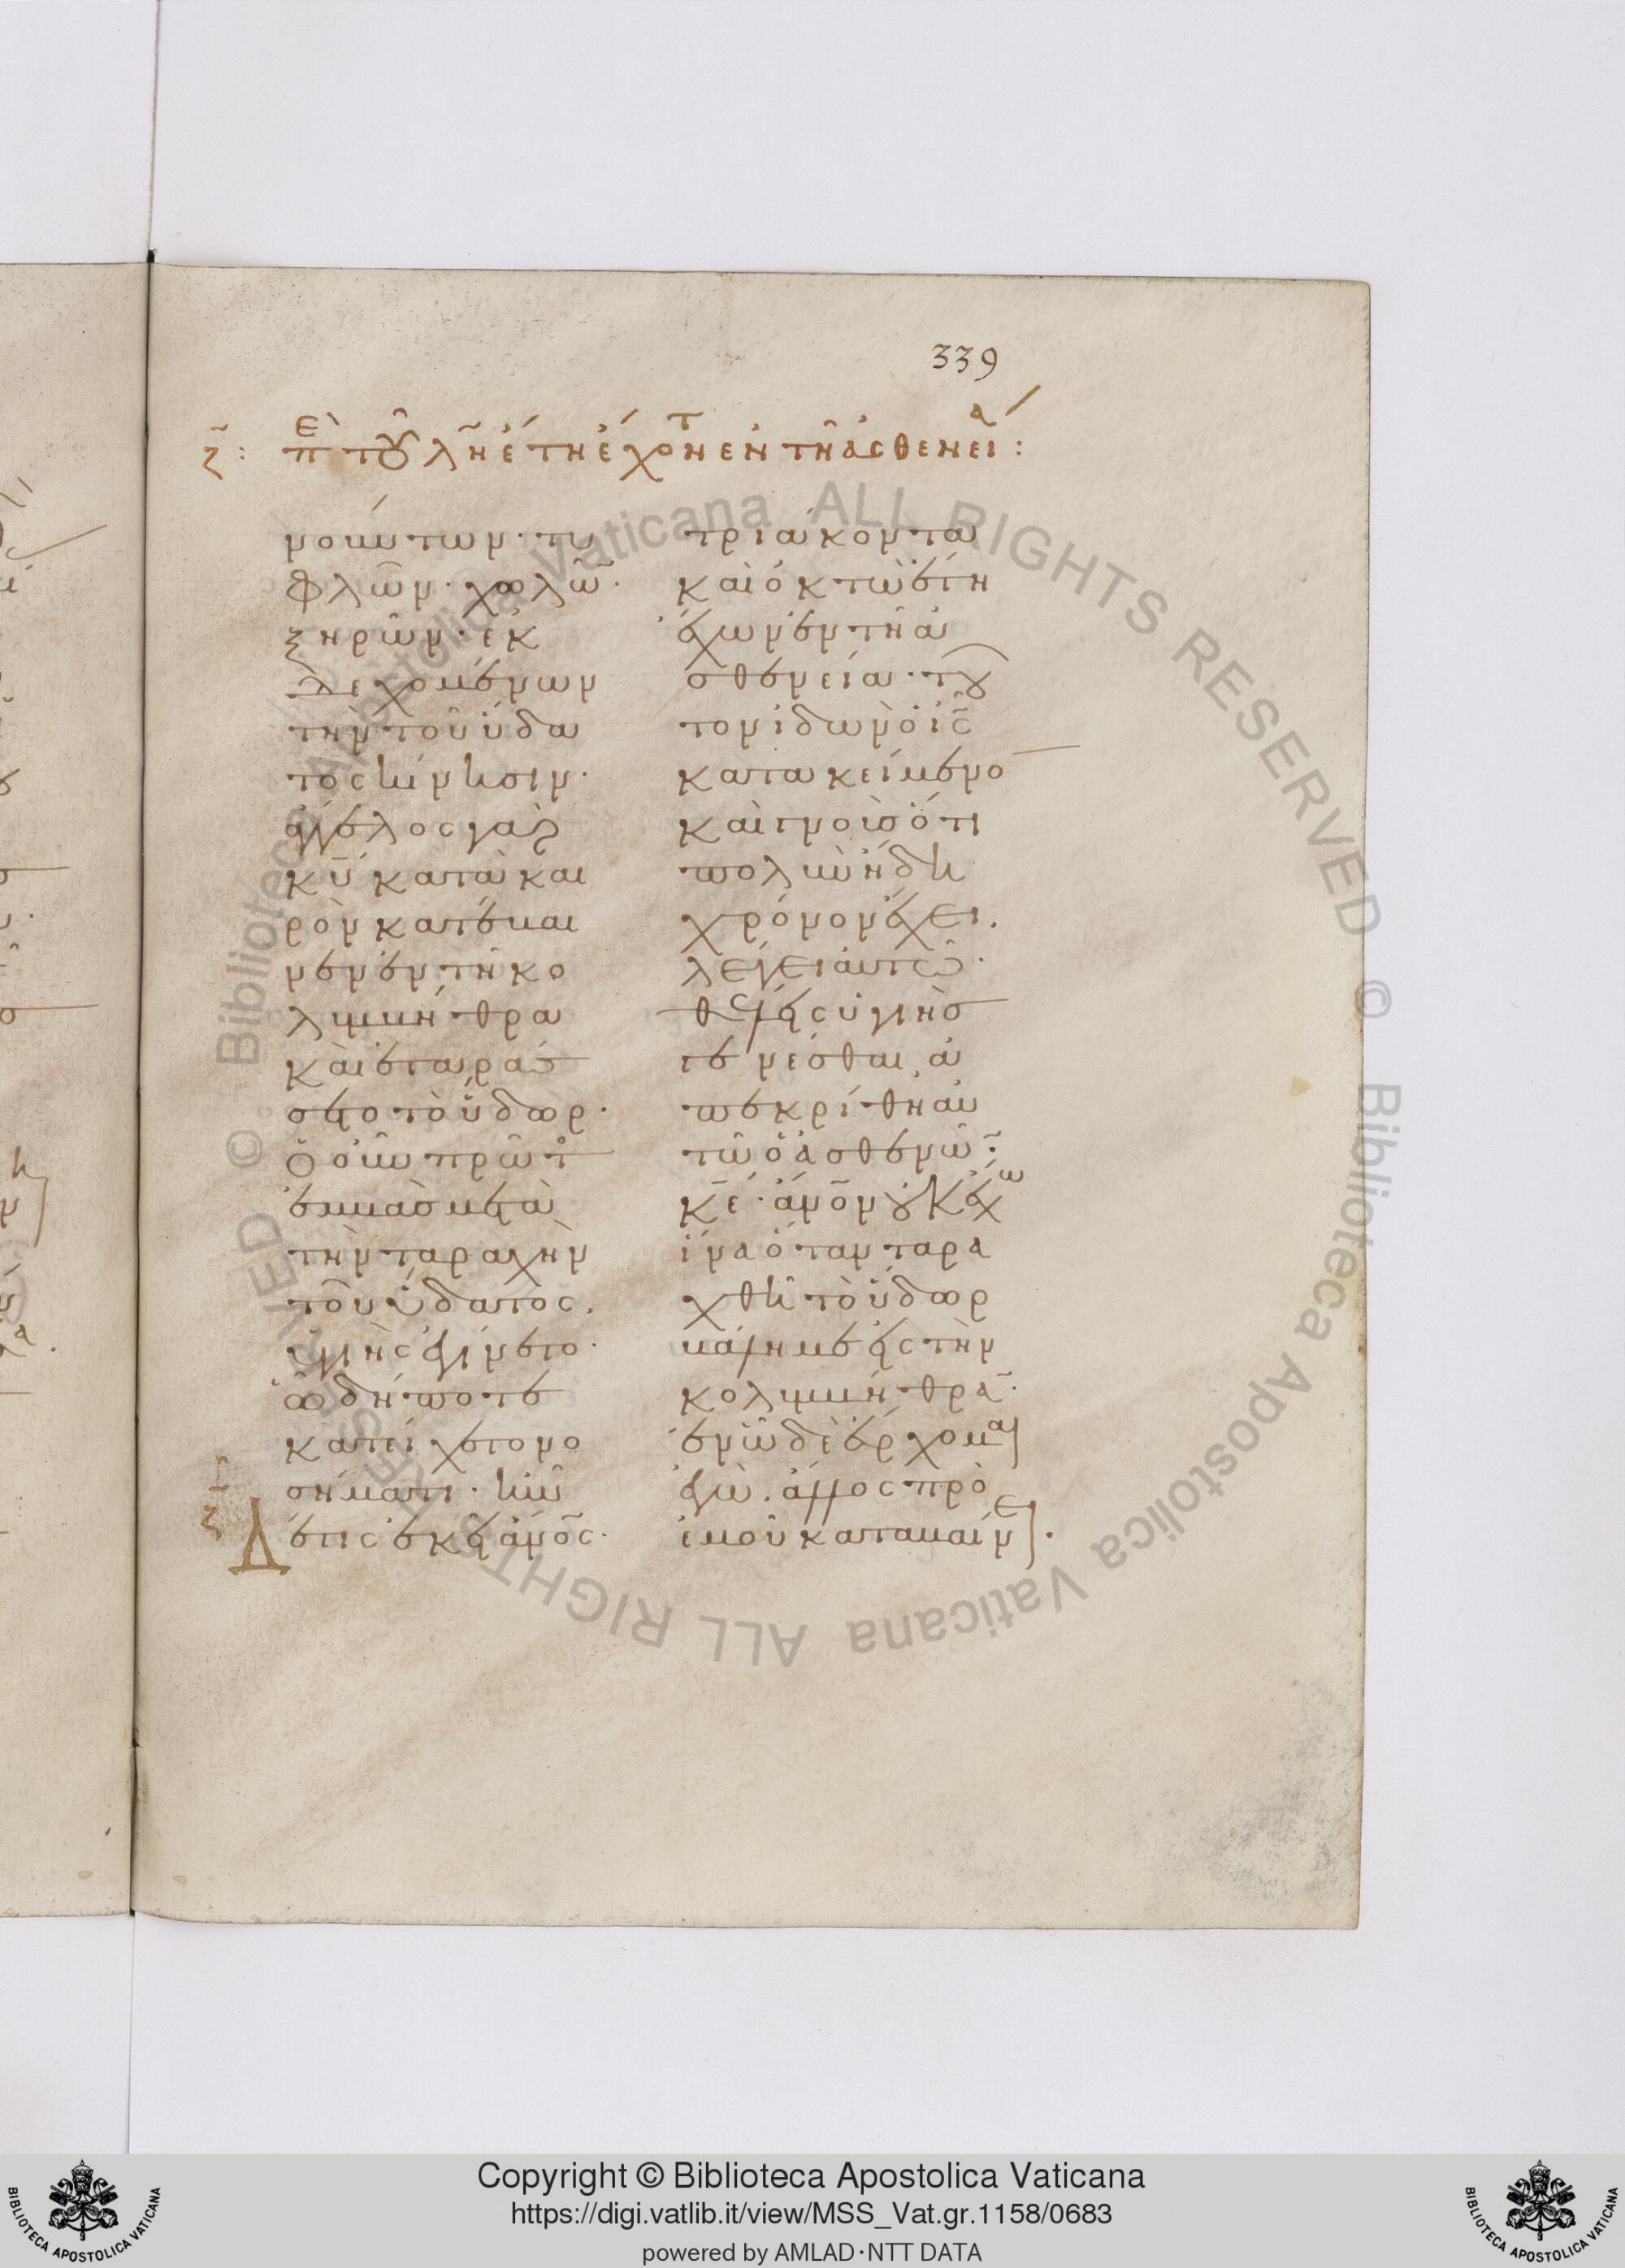 339
ζ: Ἐπὶ τοῦ λῆ ἔτη ἔχοντ ἐν τῆ ἀσθενεία:
νούντων· τυ
φλῶν· χωλῶν·
ξηρῶν· ἐκ
δεχομένων
τὴν τοῦ ὕδα
τος κίνησιν·
ἄγγελος γὰρ
κυ κατὰ και
ρὸν κατέβαι
νεν ἐν τῆ κο
λυμβήθρα
καὶ ἐταράσ
σετο τὸ ὕδωρ·
Ὁ οὖν πρῶτο
ἐμβὰς μετὰ
τὴν ταραχὴν
τοῦ ὕδατος,
ὑγιὴς ἐγίνετο·
ὧ δήποτε
κατείχετο νο
σήματι· ἦν
Δέ τις ἐκεῖ ἄνος·
τριάκοντα
καὶ ὀκτὼ ἔτη
ἔχων ἐν τῆ ἀ
σθενεία· τοῦ
τον ἰδὼν ὁ ις
κατακείμενο
καὶ γνοὺς ὅτι
πολὺν ἤδη
χρόνον ἔχει.
λέγει αὐτῶ·
θέλεις ὑγιὴς
γενέσθαι, ἀ
πεκρίθη αὐ
τῶ ὁ ἀσθενῶν·
κε· ἄνον οὐκ ἔχω
ἵνα ὅταν ταρα
χθῆ τὸ ὕδωρ
βάλη με εἰς τὴν
κολυμβήθραν·
ἐν ὧ δὲ ἔρχομαι
ἐγὼ. ἄλλος πρὸ
ἐμοῦ καταβαίνει.
Copyright © Biblioteca Apostolica Vaticana
https://digi.vatlib.it/view/MSS_Vat.gr.1158/0683
powered by AMLAD·NTT DATA
BIBLIOTECA APOSTOLICA VATICANA
BIBLIOTECA APOSTOLICA VATICANA
© Biblioteca Apostolica Vaticana ALL RIGHTS RESERVED © Biblioteca Apostolica Vaticana ALL RIGHTS RESERVED